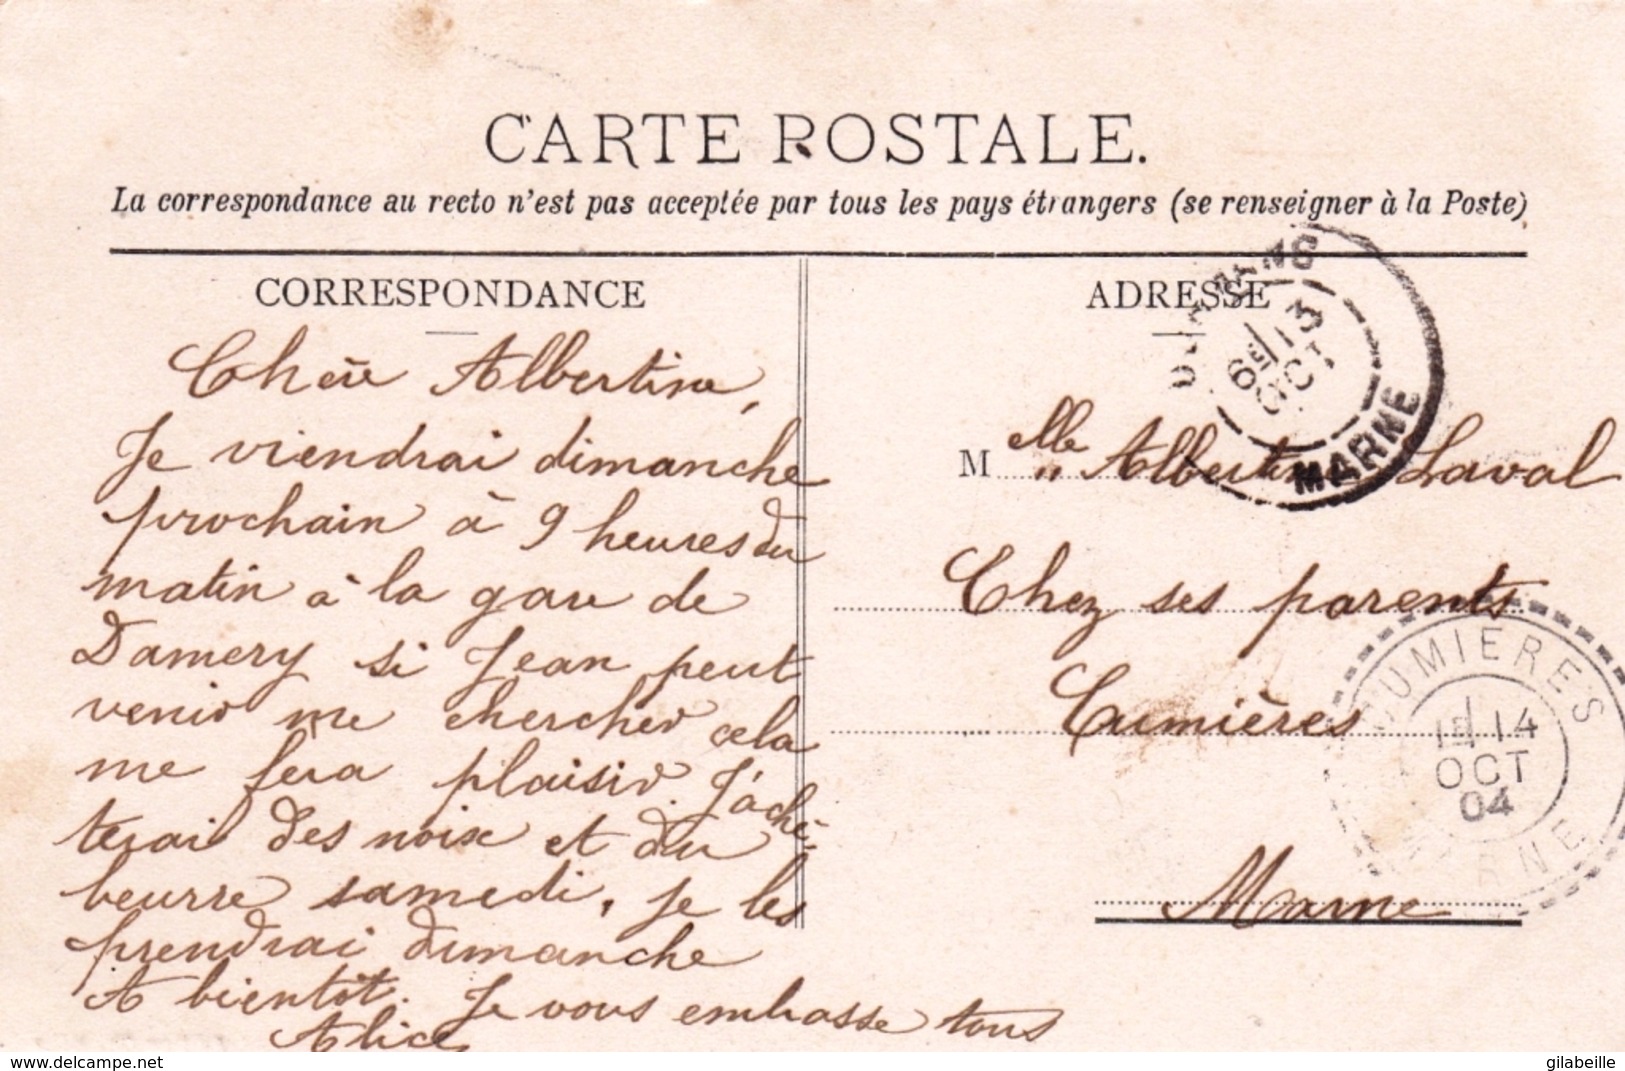 CARTE POSTALE.
La correspondance au recto n'est pas acceptée par tous les pays étrangers (se renseigner à la Poste)
CORRESPONDANCE
Chère Albertine,
Je viendrai dimanche
prochain à 9 heures du
matin à la gare de
Damery si Jean peut
venir me chercher cela
me fera plaisir. J'aché-
terai des noix et du
beurre samedi, je les
prendrai dimanche
A bientôt. Je vous embrasse tous
Alice
ADRESSE
6E 13
OCT
MARNE
M elle Albertine Laval
Chez ses parents
Cumières
Marne
CUMIERES
1E 14
OCT
04
MARNE
https://www.delcampe.net
gilabeille